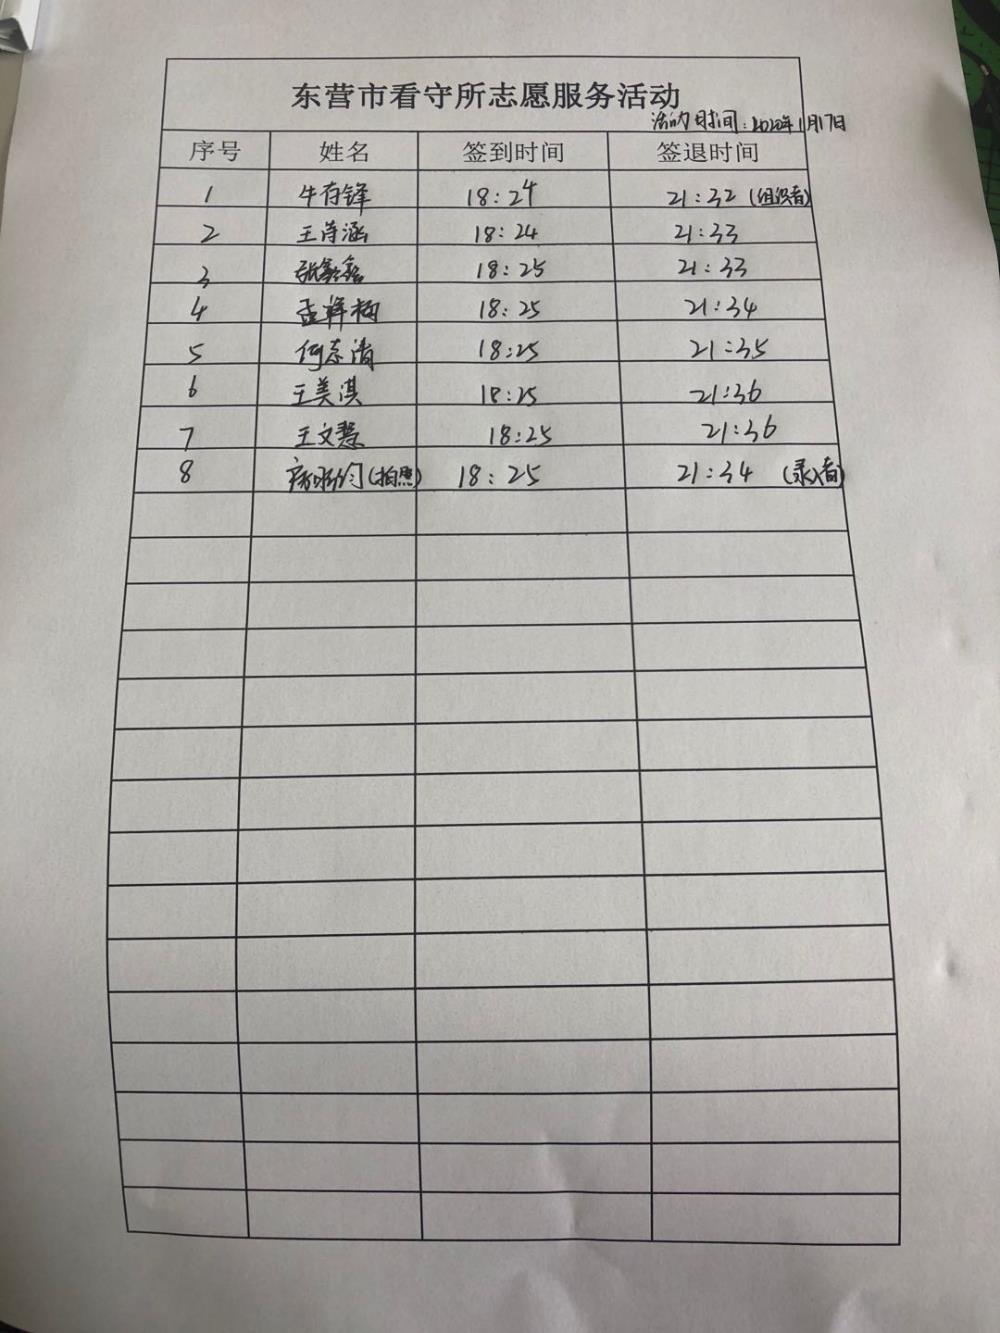 东营市看守所志愿服务活动
活动时间：2022年1月17日
序号 姓名 签到时间 签退时间
1 牛存锋 18:24 21:32 (组织者)
2 王诗涵 18:24 21:33
3 张鑫鑫 18:25 21:33
4 孟祥梅 18:25 21:34
5 何志清 18:25 21:35
6 王美淇 18:25 21:36
7 王文慧 18:25 21:36
8 (拍照) 18:25 21:34 (录入者)